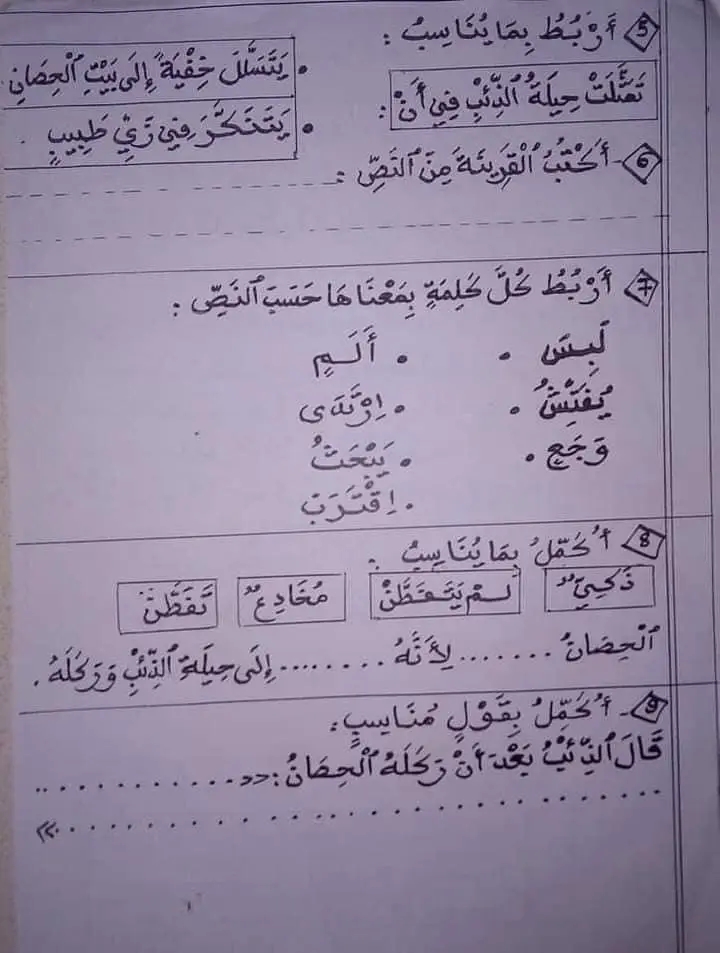 5 أَرْبُطُ بِمَا يُنَاسِبُ :
تَمَثَّلَتْ حِيلَةُ ٱلذِّئْبِ فِي أَنْ :
• يَتَسَلَّلَ خِفْيَةً إِلَى بَيْتِ ٱلْحِصَانِ
• يَتَنَكَّرَ فِي زَيِّ طَبِيبٍ .
6 - أَكْتُبُ ٱلْقَرِينَةَ مِنَ ٱلنَّصِّ :
7 أَرْبُطُ كُلَّ كَلِمَةٍ بِمَعْنَاهَا حَسَبَ ٱلنَّصِّ :
لَبِسَ • • أَلَمٍ
يُفَتِّشُ • • اِرْتَدَى
وَجَعٍ • • يَبْحَثُ
• اِقْتَرَبَ
8 أُكَمِّلُ بِمَا يُنَاسِبُ .
ذَكِيٌّ لَمْ يَتَفَطَّنْ مُخَادِعٌ تَفَطَّنَ
ٱلْحِصَانُ ....... لِأَنَّهُ ........ إِلَى حِيلَةِ ٱلذِّئْبِ وَرَكَلَهُ .
9 - أُكَمِّلُ بِقَوْلٍ مُنَاسِبٍ :
قَالَ ٱلذِّئْبُ بَعْدَ أَنْ رَكَلَهُ ٱلْحِصَانُ : «...........
..............................»